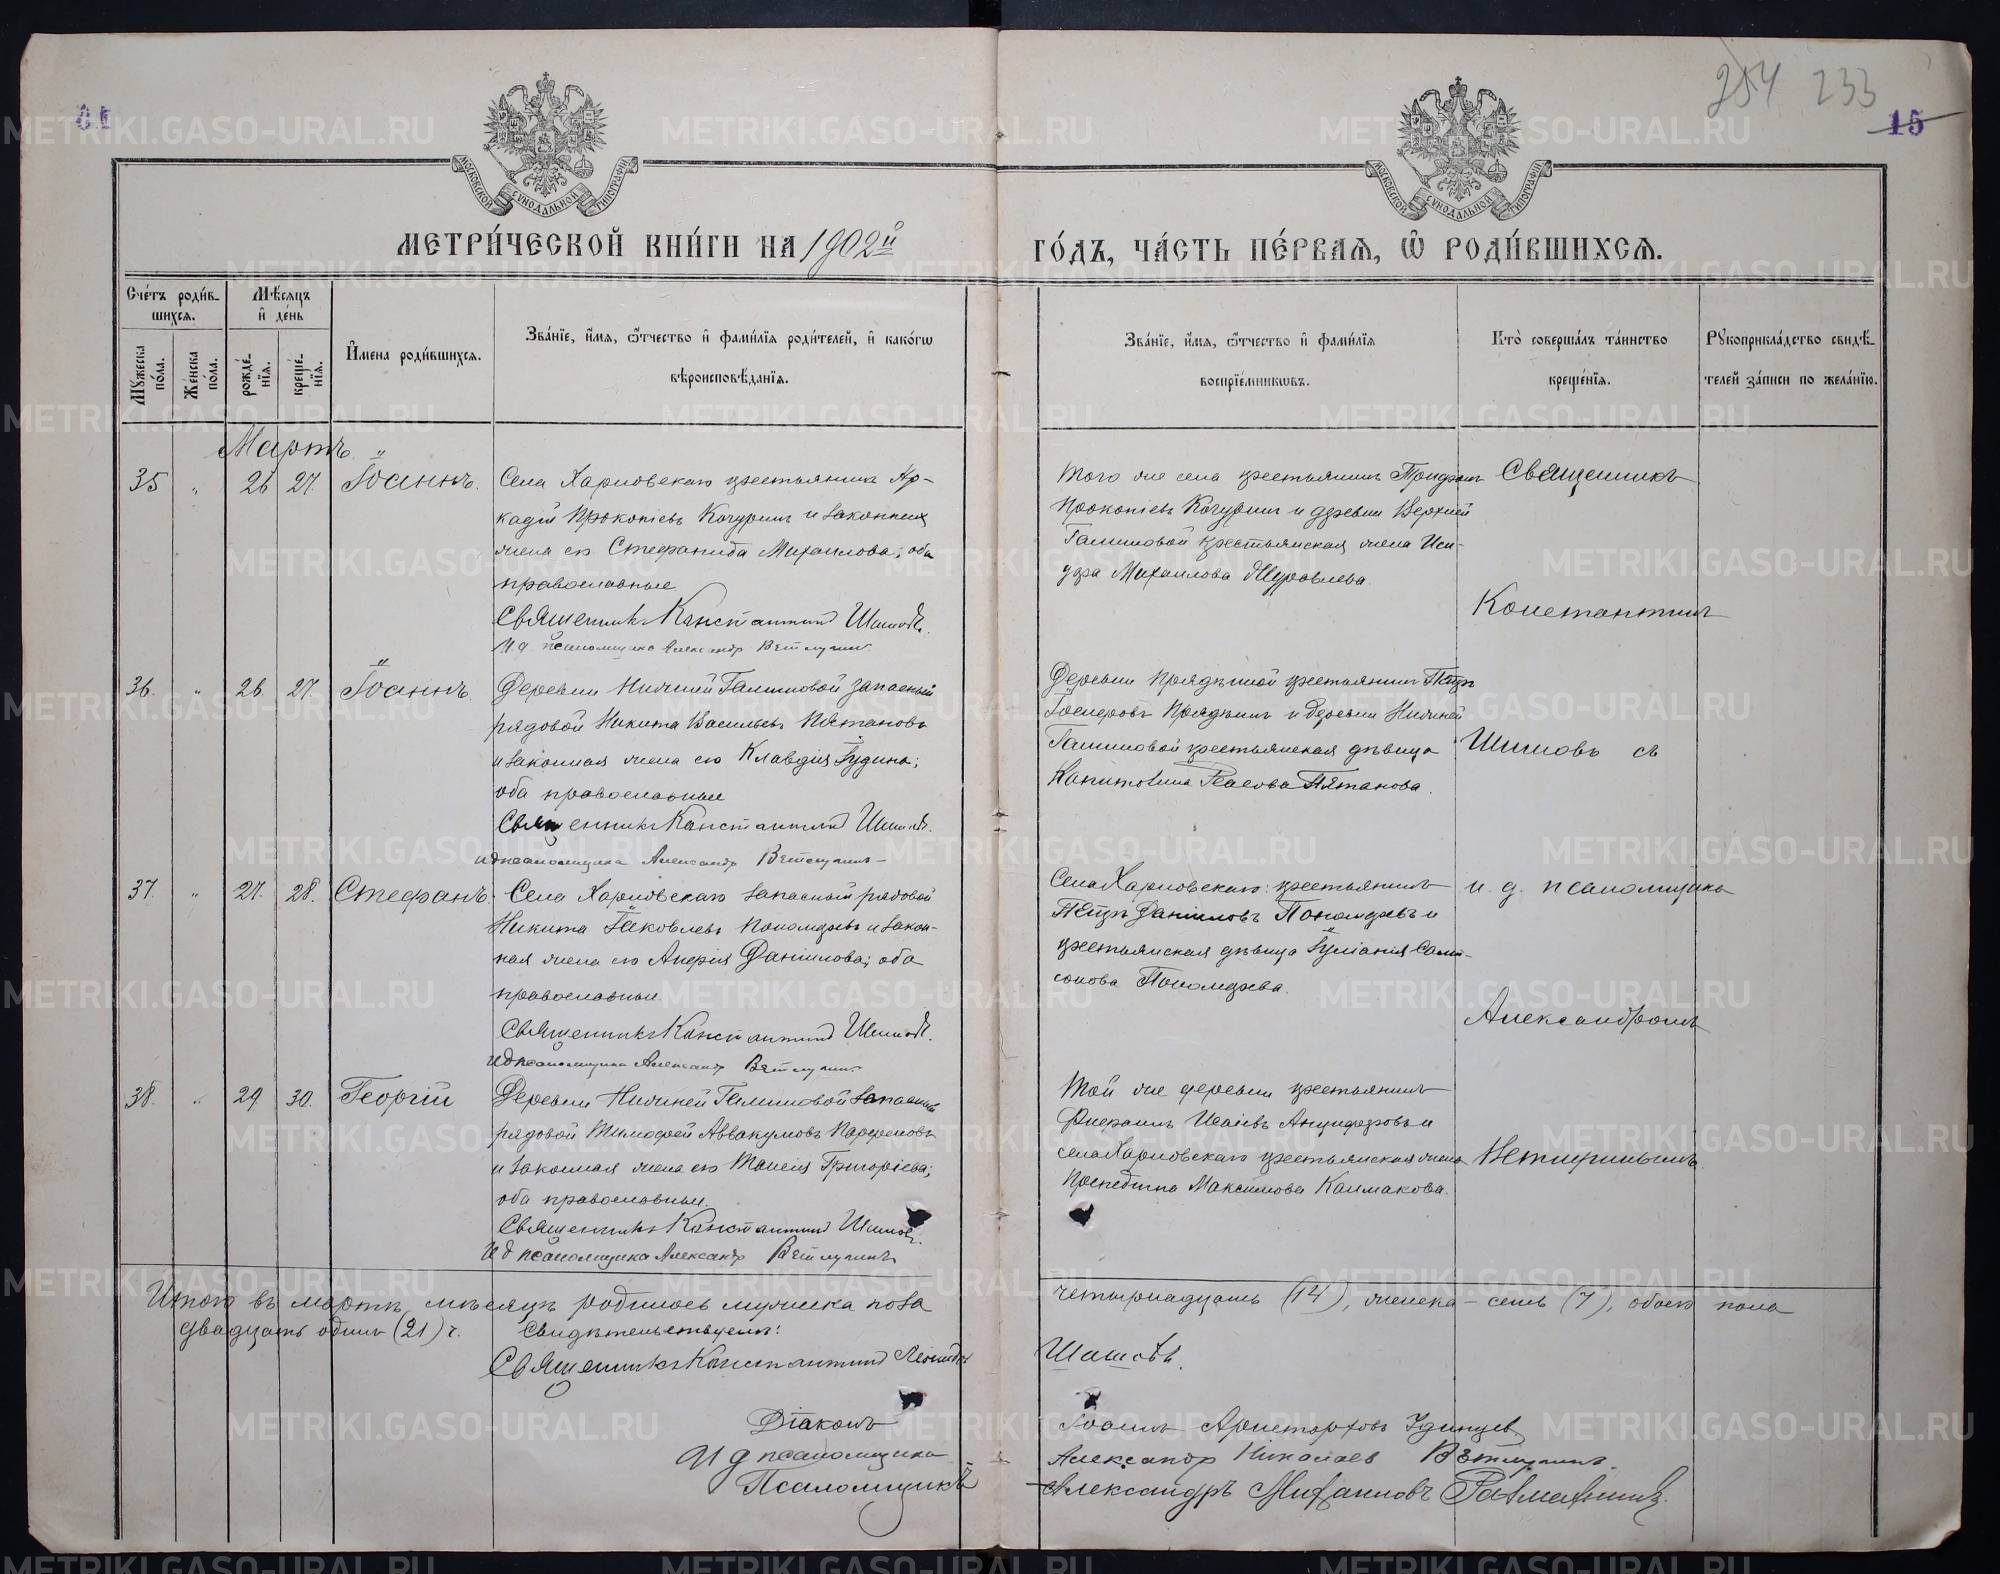 254 233
15
МЕТРИ́ЧЕСКОЙ КНИ́ГИ НА 1902й
ГО́ДЪ, ЧА́СТЬ ПЕ́РВАЯ, Ѡ РОДИ́ВШИХСЯ.
МОСКОВСКОЙ СѴНОДАЛЬНОЙ ТИПОГРАФІИ
МОСКОВСКОЙ СѴНОДАЛЬНОЙ ТИПОГРАФІИ
Счётъ роди́в-
шихся.
Мѣ́сяцъ
и҆ де́нь
Мꙋ́жеска по́ла.
Же́нска по́ла.
рожде́-
нїя.
креще́-
нїя.
И҆мена роди́вшихся.
Зва́нїе, и҆́мя, ѻ҆́тчество и҆ фами́лїя роди́телей, и҆ како́гѡ
вѣроисповѣ́данїя.
Зва́нїе, и҆́мя, ѻ҆́тчество и҆ фами́лїя
воспрїе́мникѡвъ.
Кто̀ соверша́лъ та́инство
креще́нїя.
Рꙋкоприкла́дство свидѣ́-
телей за́писи по жела́нїю.
Мартъ
35 " 26 27. Іоаннъ.
Села Харловскаго крестьянинъ Ар-
кадій Прокопіевъ Кочуринъ и законная
жена его Стефанида Михаилова; оба
православные
Священникъ Константинъ Шишовъ.
И.д. псаломщика Александр Ветлугинъ
Того же села крестьянинъ Трифонъ
Прокопіевъ Кочуринъ и деревни Верхней
Галишовой крестьянская жена Иси-
дора Михаилова Журавлева.
36. " 26. 27. Іоаннъ.
Деревни Нижней Галишовой запасный
рядовой Никита Васильевъ Пятановъ
и законная жена его Клавдія Іудина;
оба православные
Священникъ Константинъ Шишовъ.
и д псаломщика Александр Ветлугинъ
Деревни Прядеиной крестьянинъ Петръ
Прядеинъ и деревни Нижней
Галишовой крестьянская дѣвица
Капитолина Власова Пятанова.
37. " 27. 28. Стефанъ.
Села Харловскаго запасный рядовой
Никита Іаковлевъ Пономаревъ и закон-
ная жена его Анфія Даніилова; оба
православные.
Священникъ Константинъ Шишовъ.
И д псаломщика Александр Ветлугинъ
Села Харловскаго крестьянинъ
Петръ Даніиловъ Пономаревъ и
крестьянская дѣвица Іуліанія Самп-
сонова Пономарева.
38. " 29 30. Георгій
Деревни Нижней Галишовой запасный
рядовой Тимофей Аввакумовъ Парфеновъ
и законная жена его Таисія Григоріева;
оба православные.
Священникъ Константинъ Шишовъ.
И д псаломщика Александр Ветлугинъ
Той же деревни крестьянинъ
Исаіевъ Анциферовъ и
села Харловскаго крестьянская жена
Максимова Калмакова.
Священникъ
Константинъ
Шишовъ съ
и. д. псаломщика
Александромъ
Ветлугинымъ
Итого въ мартѣ мѣсяцѣ родилось мужеска пола
четырнадцать (14), женска – семь (7), обоего пола
двадцать одинъ (21) ч.
Свидѣтельствуемъ:
Священникъ Константинъ Леонидовъ
Шишовъ.
Діаконъ
Іоаннъ Аристарховъ Удинцев
И д псаломщика
Александр Николаев Ветлугинъ.
Псаломщикъ
Александръ Михаиловъ
METRIKI.GASO-URAL.RU